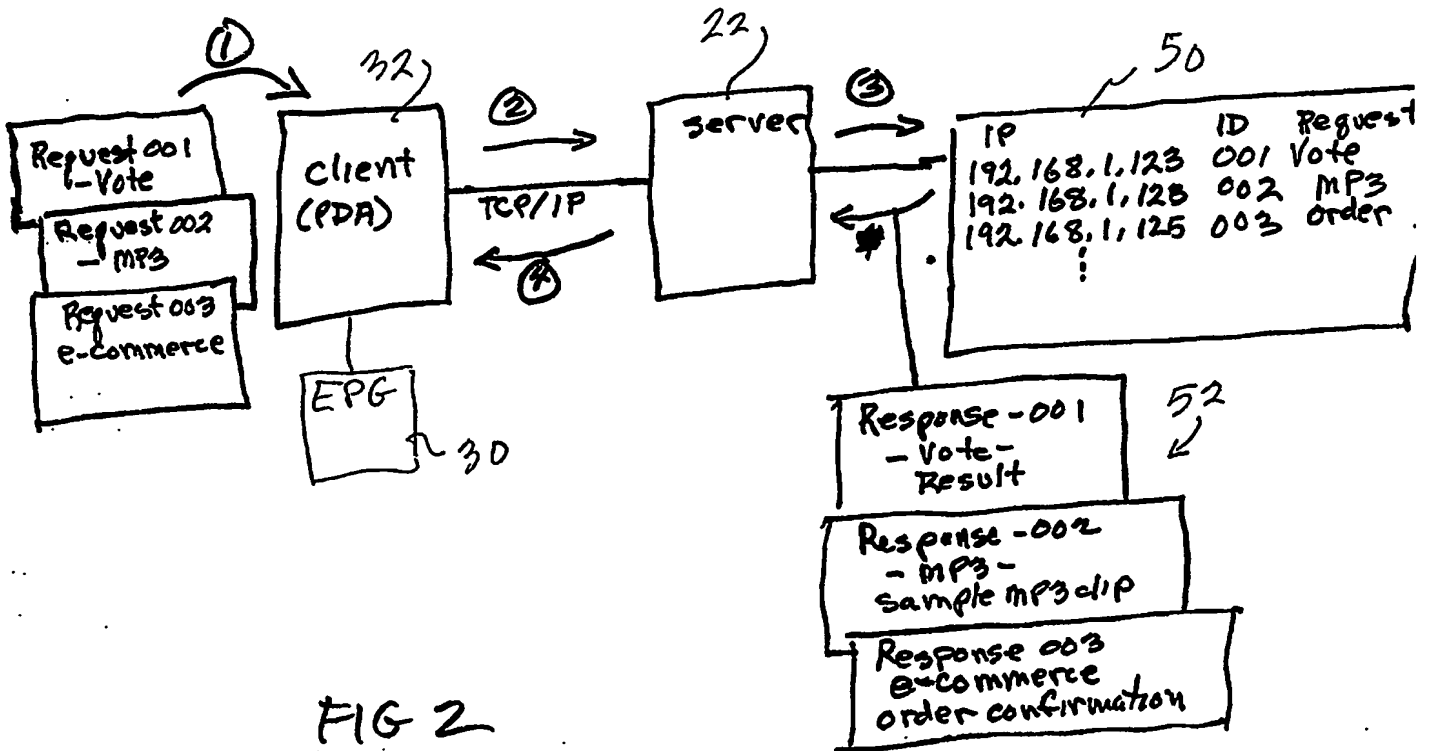 ①
32
22
③
50
②
Request 001
-Vote
Request 002
- MP3
Request 003
e-commerce
client
(PDA)
TCP/IP
④
server
IP ID Request
192.168.1.123 001 Vote
192.168.1.123 002 MP3
192.168.1.125 003 order
EPG
30
52
Response -001
- Vote -
Result
Response -002
- MP3 -
sample MP3 clip
Response 003
e-commerce
order confirmation
FIG 2